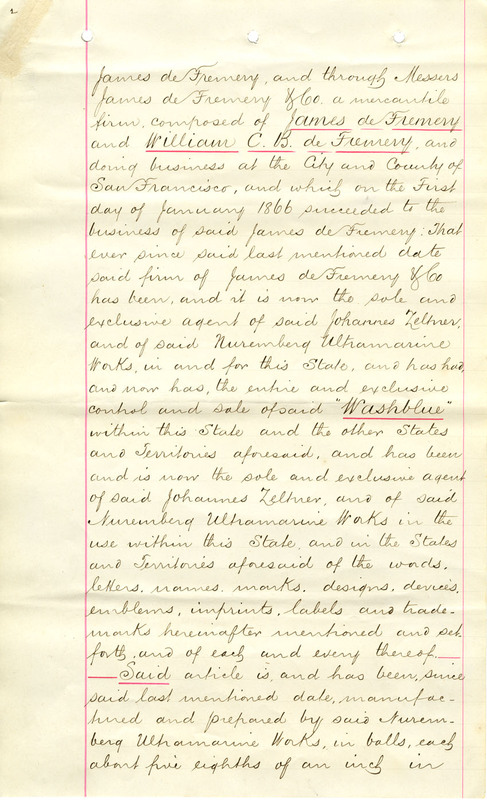 2
James de Fremery, and through Messers
James de Fremery & Co. a mercantile
firm, composed of James de Fremery
and William C. B. de Fremery, and
doing business at the City and County of
San Francisco, and which on the First
day of January 1866 succeeded to the
business of said James de Fremery: That
ever since said last mentioned date
said firm of James de Fremery & Co
has been, and it is now the sole and
exclusive agent of said Johannes Zeltner,
and of said Nuremberg Ultramarine
Works, in and for this State, and has had,
and now has, the entire and exclusive
control and sale of said "Washblue"
within this State and the other States
and Territories aforesaid, and has been
and is now the sole and exclusive agent
of said Johannes Zeltner, and of said
Nuremberg Ultramarine Works in the
use within this State, and in the States
and Territories aforesaid of the words,
letters, names, marks, designs, devices,
emblems, imprints, labels and trade-
marks hereinafter mentioned and set
forth, and of each and every thereof.
Said article is, and has been, since
said last mentioned date, manufac-
tured and prepared by said Nurem-
berg Ultramarine Works, in balls, each
about five eighths of an inch in